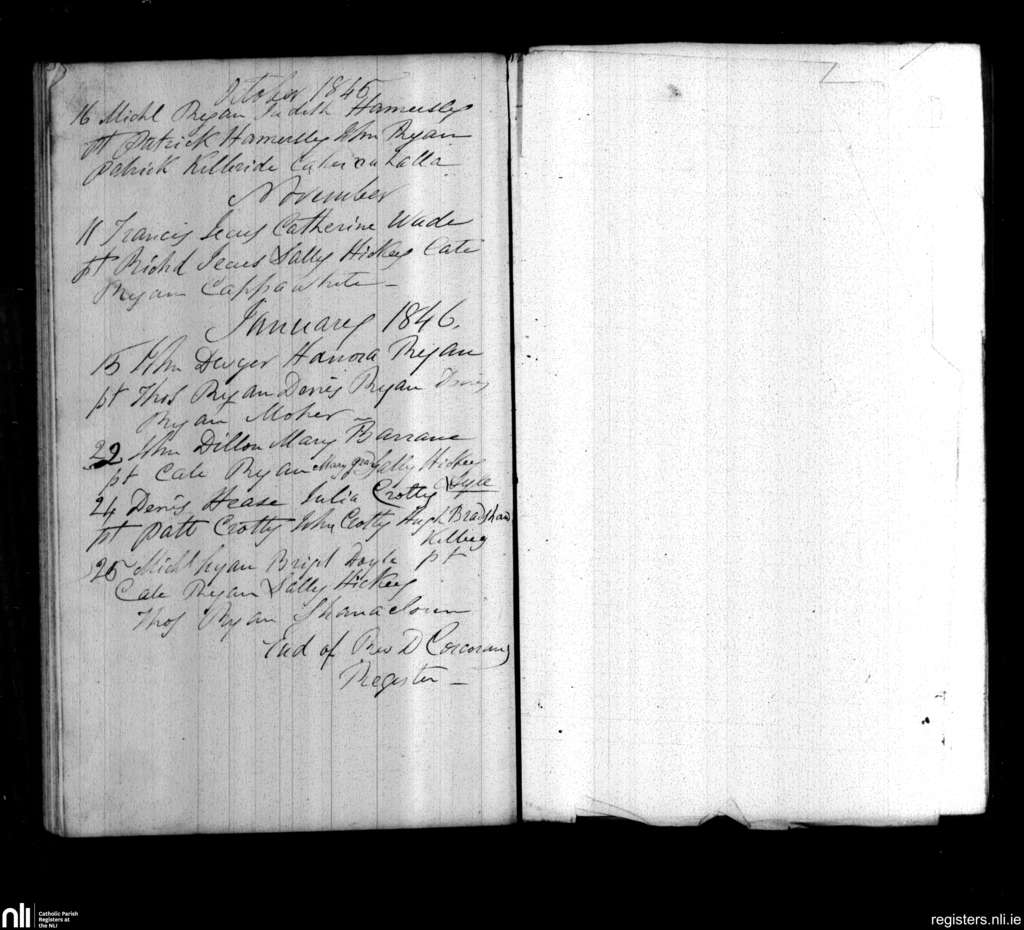 October 1845
16 Michl Ryan Judith Hamersley
pt Patrick Hamersley Wm Ryan
Patrick Kilbride
November
11 Francis Catherine Wade
pt Richd Sally Hickey Cate
Ryan Cappawhite
January 1846.
15 Wm Dwyer Hanora Ryan
pt Thos Ryan Denis Ryan Denis
Ryan Moher
22 Wm Dillon Mary Barrane
pt Cate Ryan Mary Sally Hickey
24 Denis Hease Julia Crotty
pt Patt Crotty John Crotty Hugh Bradshaw
25 Michl Ryan Bridt Doyle pt
Cate Ryan Sally Hickey
Thos Ryan
End of Rev D Corcorans
Register
nli
Catholic Parish
Registers at
the NLI
registers.nli.ie